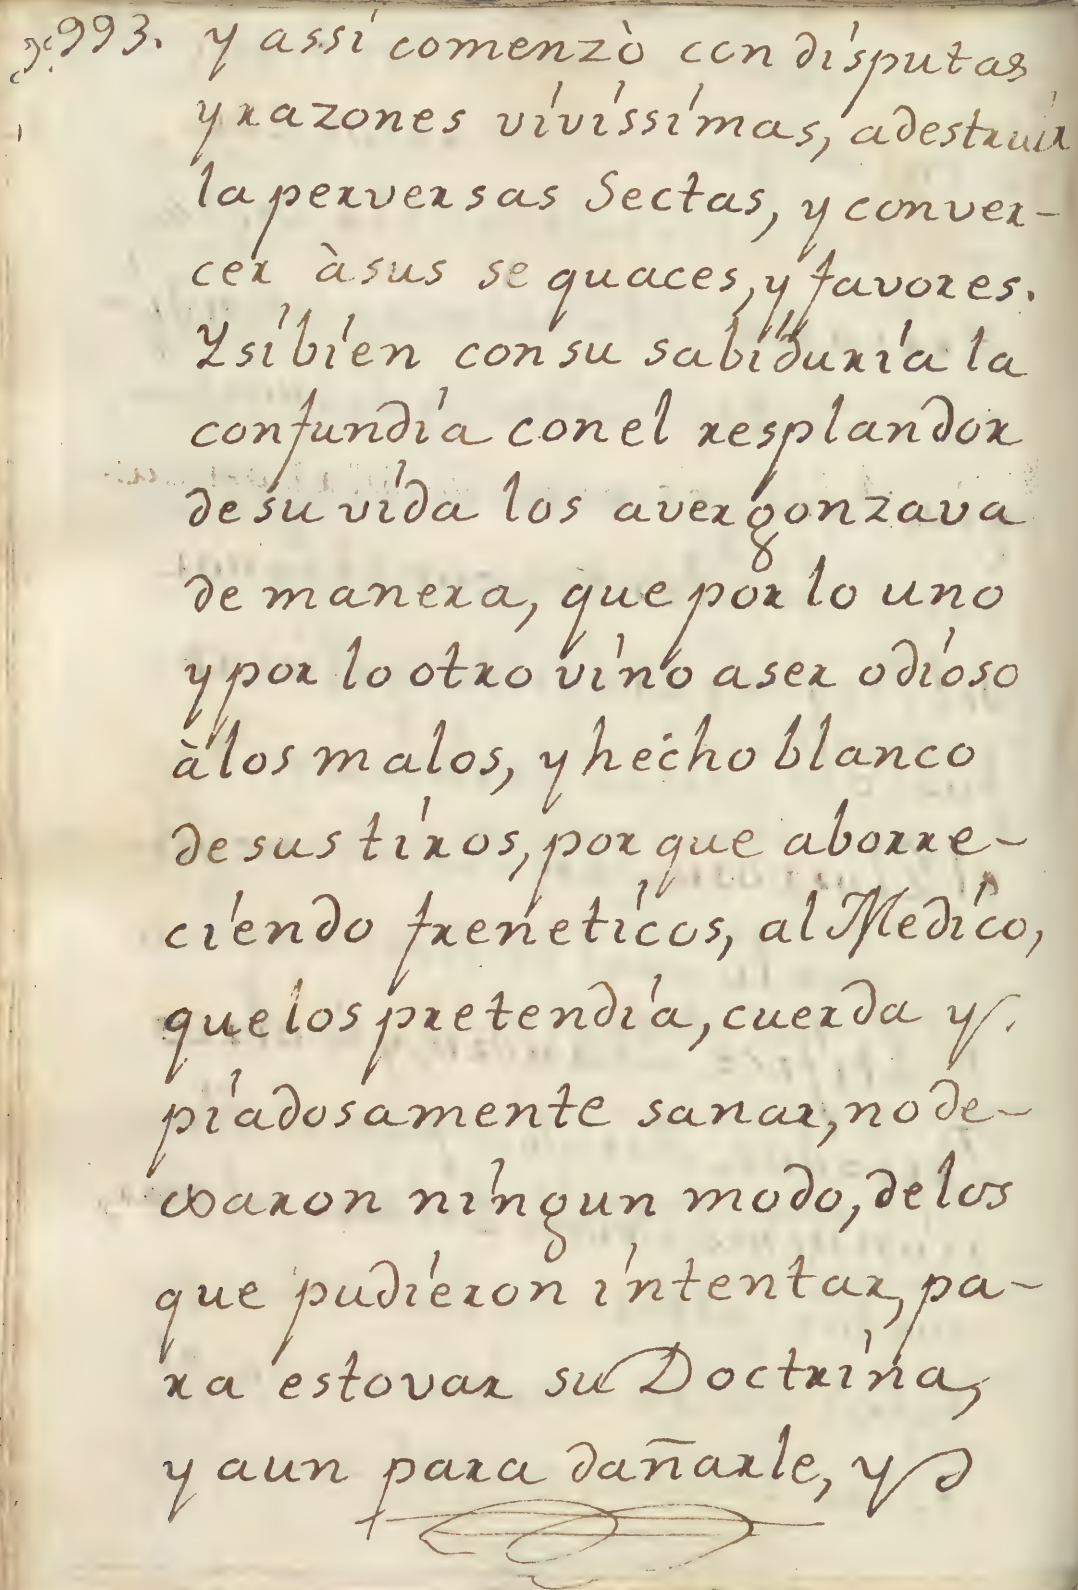 993. y assi comenzò con disputas
y razones vivissimas, a destruir
la perversas Sectas, y conver-
cer à sus sequaces, y favores.
Y si bien con su sabiduria la
confundia con el resplandor
de su vida los avergonzava
de manera, que por lo uno
y por lo otro vino a ser odioso
à los malos, y hecho blanco
de sus tiros, porque aborre-
ciendo freneticos, al Medico,
que los pretendia, cuerda y
piadosamente sanar, no de-
xaron ningun modo, de los
que pudieron intentar, pa-
ra estovar su Doctrina,
y aun para dañarle, y